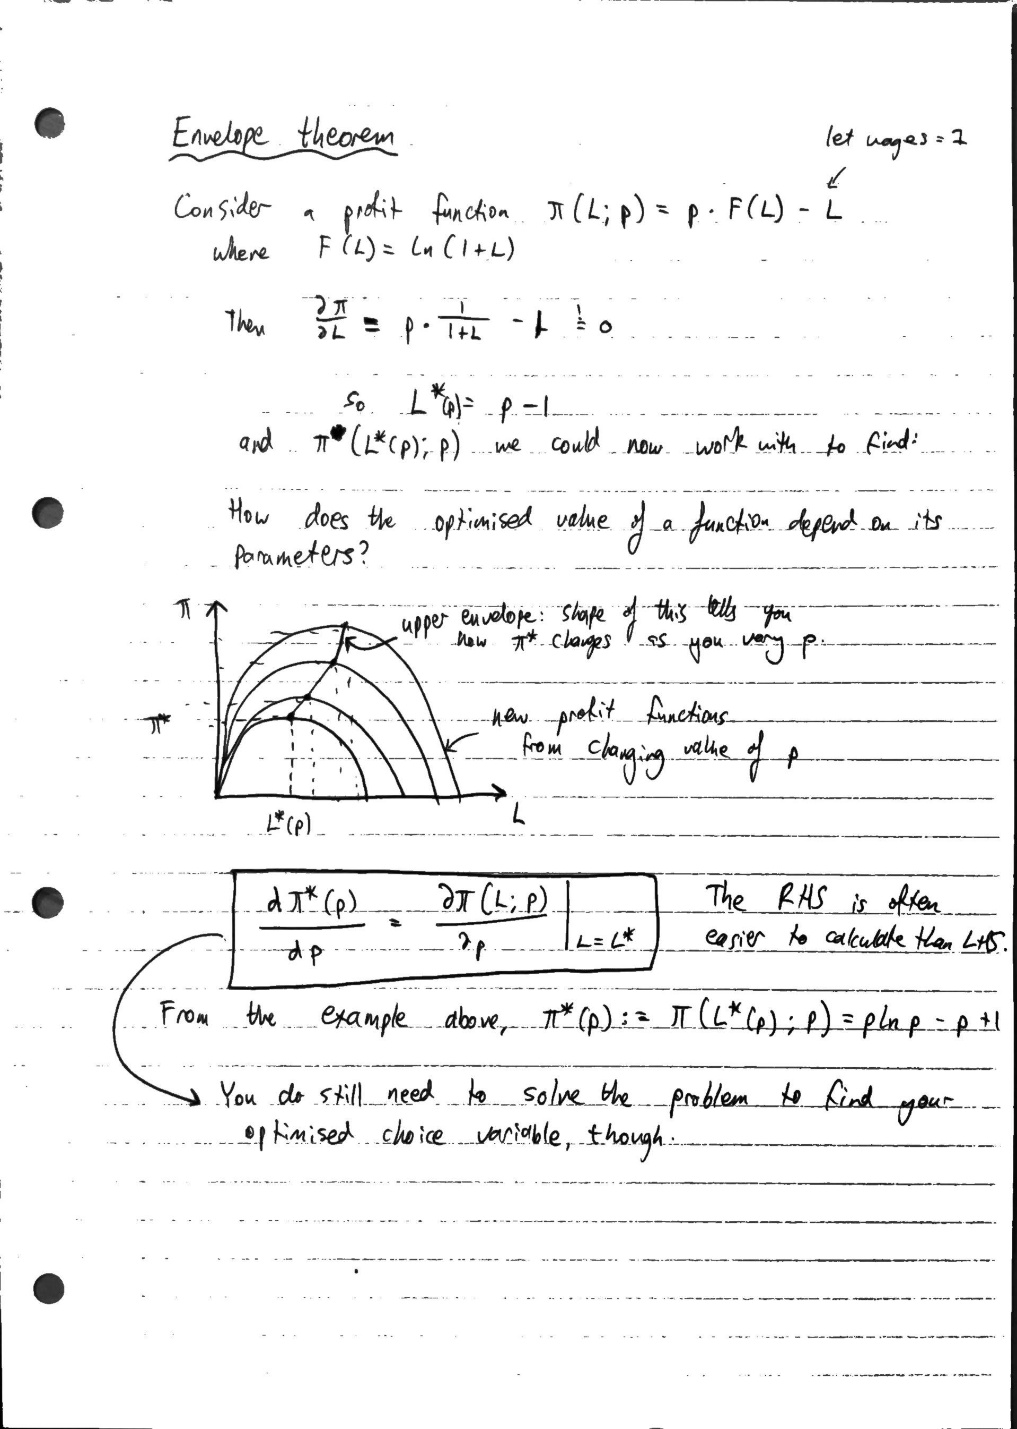 Envelope theorem
let wages = 1
Consider a profit function π(L; p) = p · F(L) - L
where F(L) = ln(1+L)
Then ∂π/∂L = p · 1/(1+L) - 1 =! 0
so L*(p) = p - 1
and π(L*(p); p) we could now work with to find:
How does the optimised value of a function depend on its
parameters?
π
upper envelope: shape of this tells you
how π* changes as you vary p.
π*
new profit functions
from changing value of p
L
L*(p)
dπ*(p)/dp = ∂π(L; p)/∂p | L = L*
The RHS is often
easier to calculate than LHS.
From the example above, π*(p) := π(L*(p); p) = p ln p - p + 1
You do still need to solve the problem to find your
optimised choice variable, though.